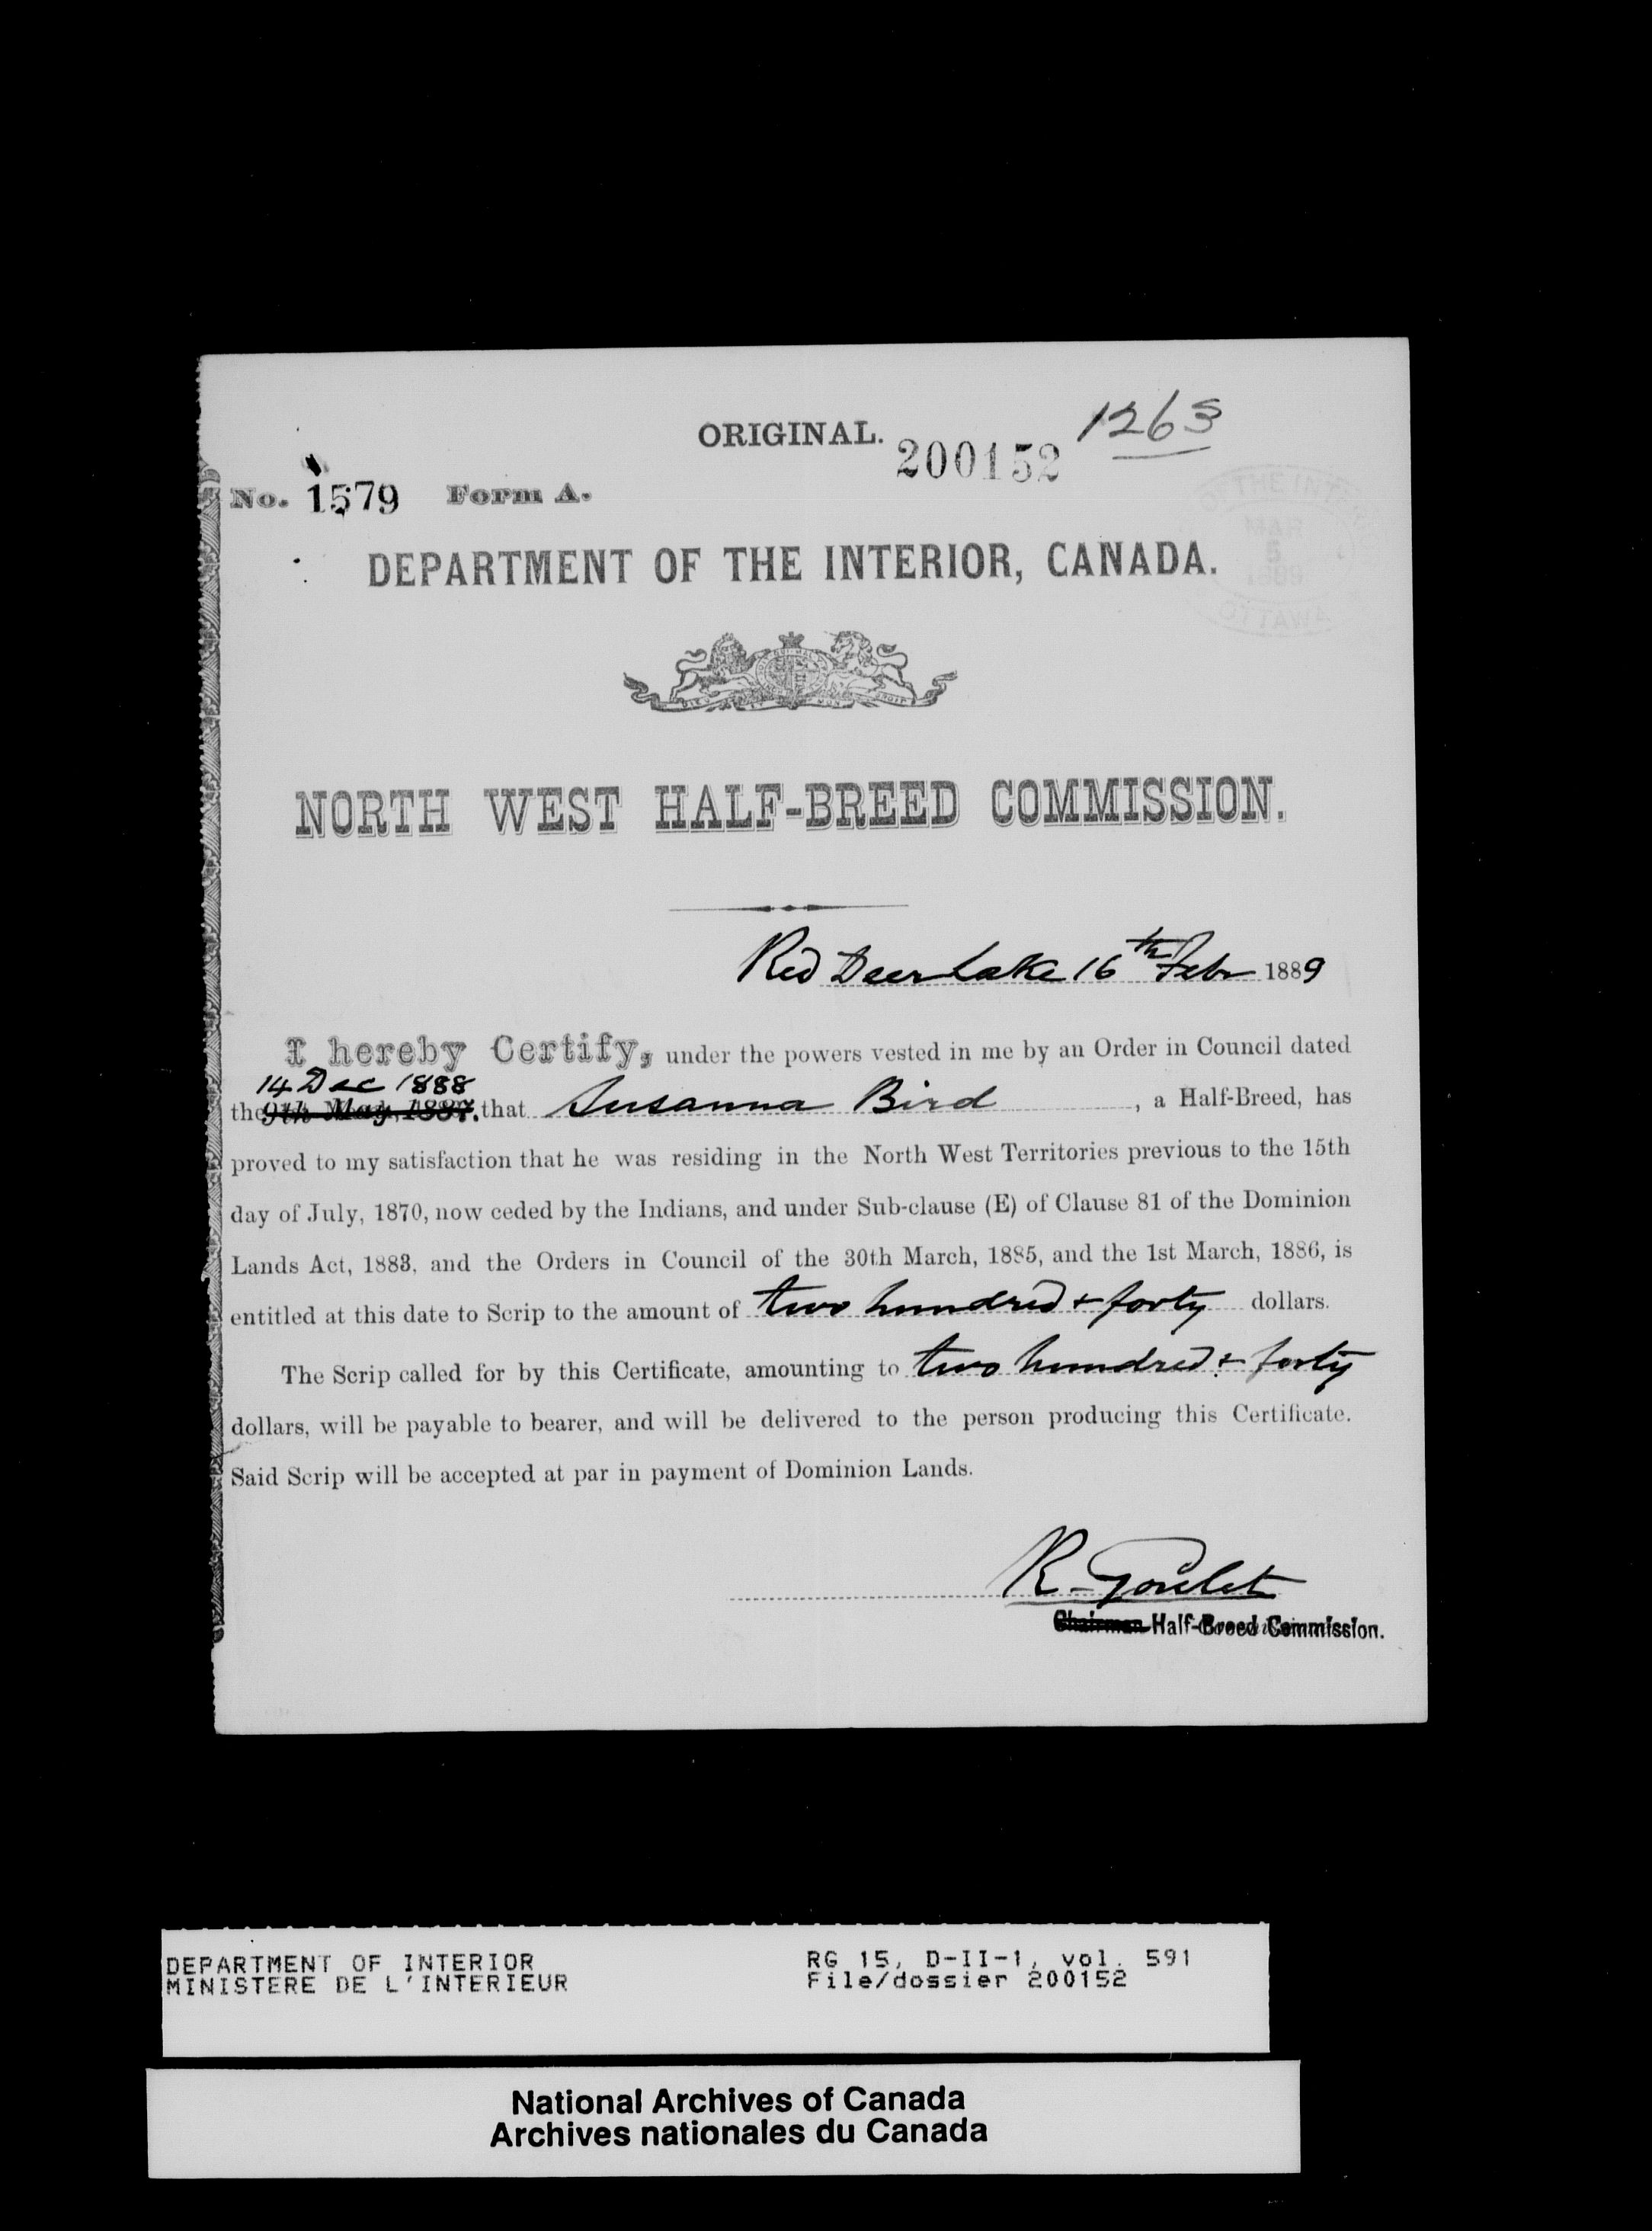 ORIGINAL.
200152
1263
No. 1579 Form A.
THE INT
MAR
5
1889
OTTAWA
DEPARTMENT OF THE INTERIOR, CANADA.
NORTH WEST HALF-BREED COMMISSION.
Red Deer Lake 16th Febr 1889
I hereby Certify, under the powers vested in me by an Order in Council dated
14 Dec 1888
the 9th May, 1887. that Susanna Bird, a Half-Breed, has
proved to my satisfaction that he was residing in the North West Territories previous to the 15th
day of July, 1870, now ceded by the Indians, and under Sub-clause (E) of Clause 81 of the Dominion
Lands Act, 1883, and the Orders in Council of the 30th March, 1885, and the 1st March, 1886, is
entitled at this date to Scrip to the amount of two hundred + forty dollars.
The Scrip called for by this Certificate, amounting to two hundred + forty
dollars, will be payable to bearer, and will be delivered to the person producing this Certificate.
Said Scrip will be accepted at par in payment of Dominion Lands.
R. Goulet
Chairman Half-Breed Commission.
DEPARTMENT OF INTERIOR
MINISTERE DE L'INTERIEUR
RG 15, D-II-1, vol. 591
File/dossier 200152
National Archives of Canada
Archives nationales du Canada